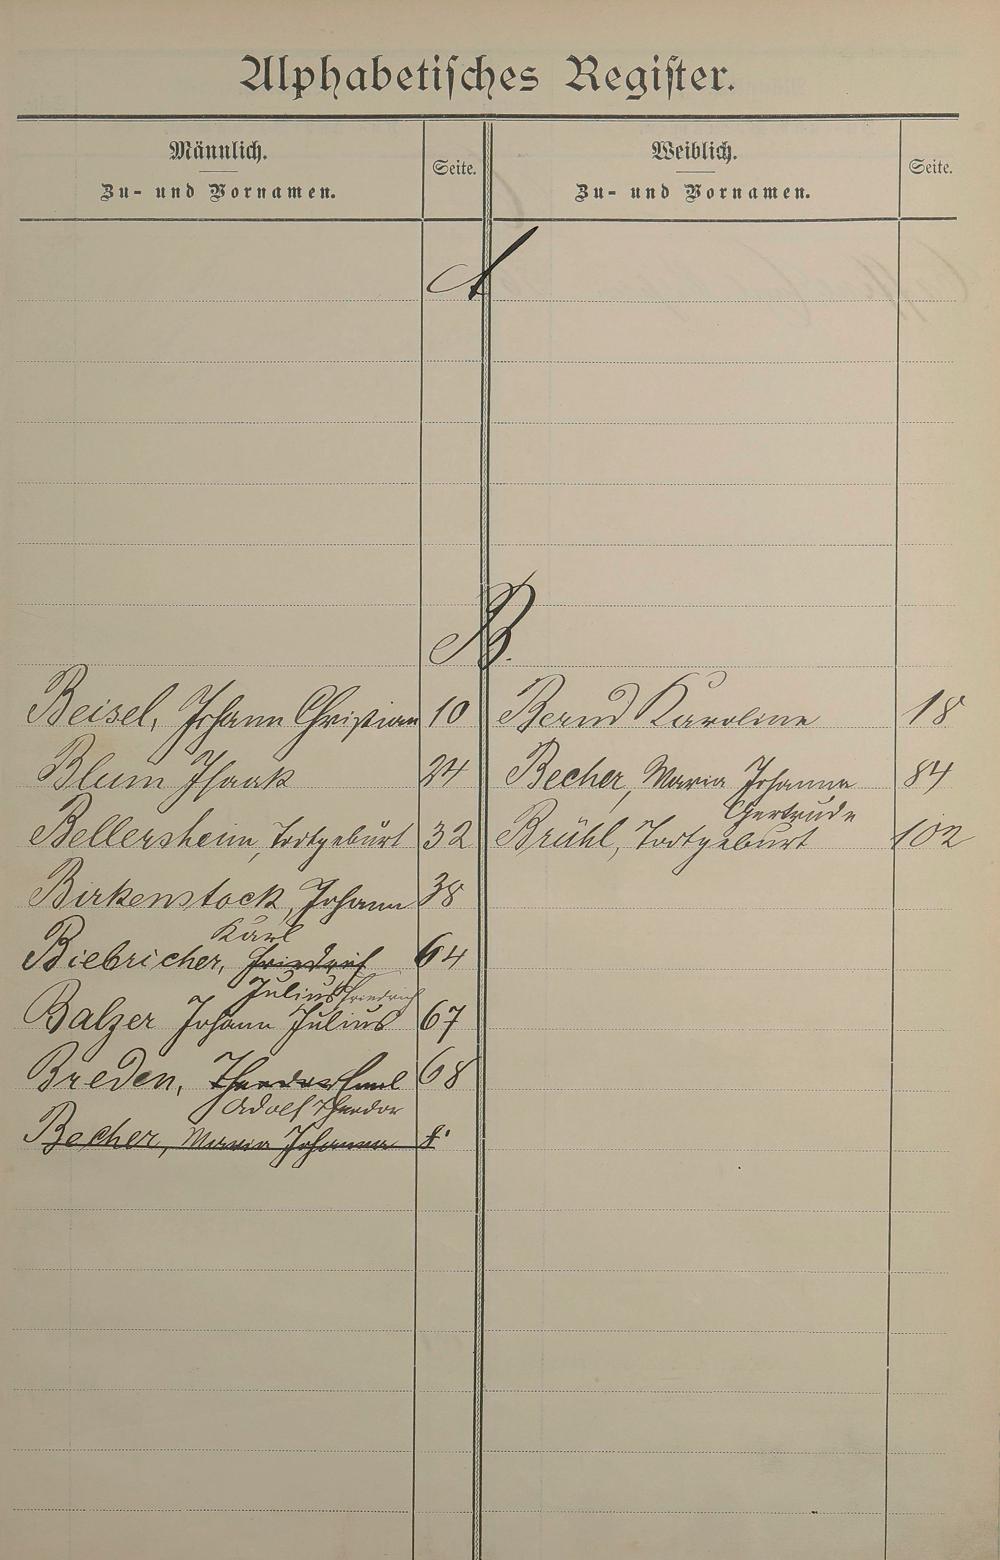 Alphabetisches Register.
Männlich. Seite. Weiblich. Seite.
Zu- und Vornamen. Zu- und Vornamen.
A
B.
Beisel, Johann Christian 10 Bernd Karoline 18
Blum Isaak 24 Becher, Maria Johanna 84
Gertrude
Bellersheim, Todtgeburt 32 Brühl, Todtgeburt 102
Birkenstock, Johann 38
Karl
Biebricher, Friedrich 64
Julius Friedrich
Balzer Johann Julius 67
Breden, Theodor Emil 68
Adolf Theodor
Becher, Maria Johanna 8